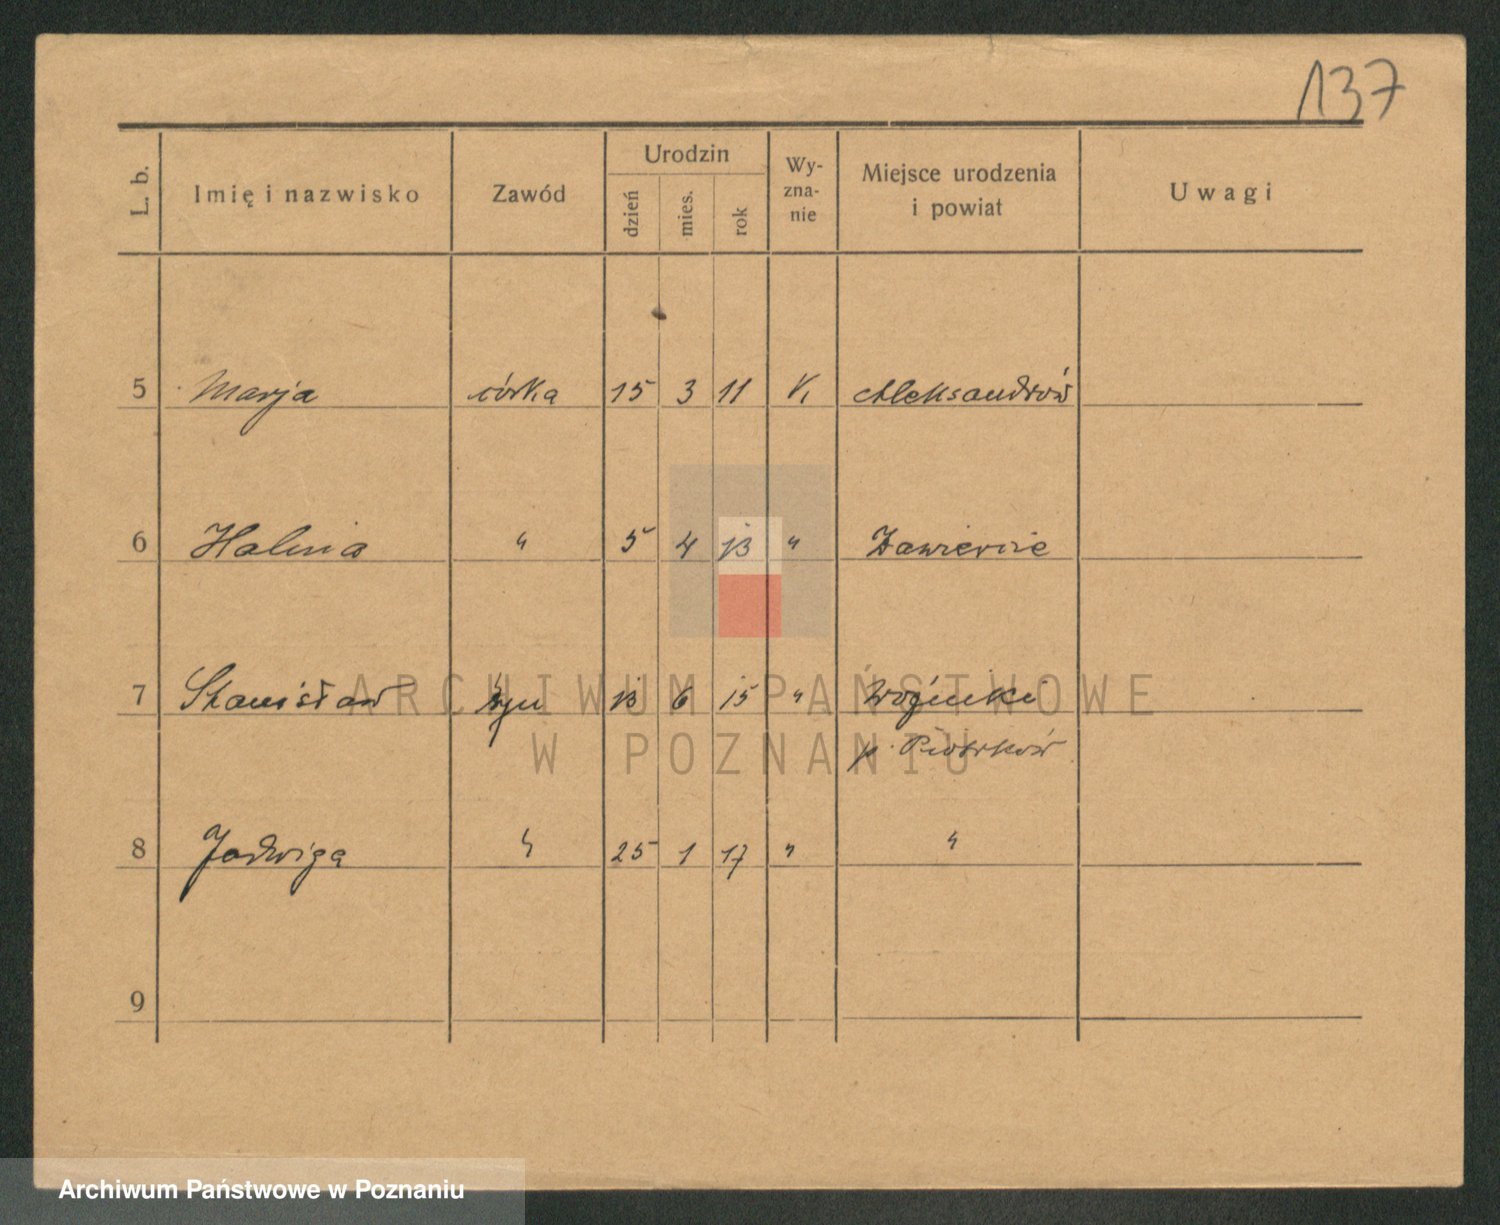 137
L. b. Imię i nazwisko Zawód Urodzin dzień mies. rok Wy-zna-nie Miejsce urodzenia i powiat Uwagi
5 Marja córka 15 3 11 K. Aleksandrów
6 Halina " 5 4 13 " Zawiercie
7 Stanisław syn 13 6 15 " Woźniki
p. Piotrków
8 Jadwiga " 25 1 17 " "
9
ARCHIWUM PAŃSTWOWE
W POZNANIU
Archiwum Państwowe w Poznaniu